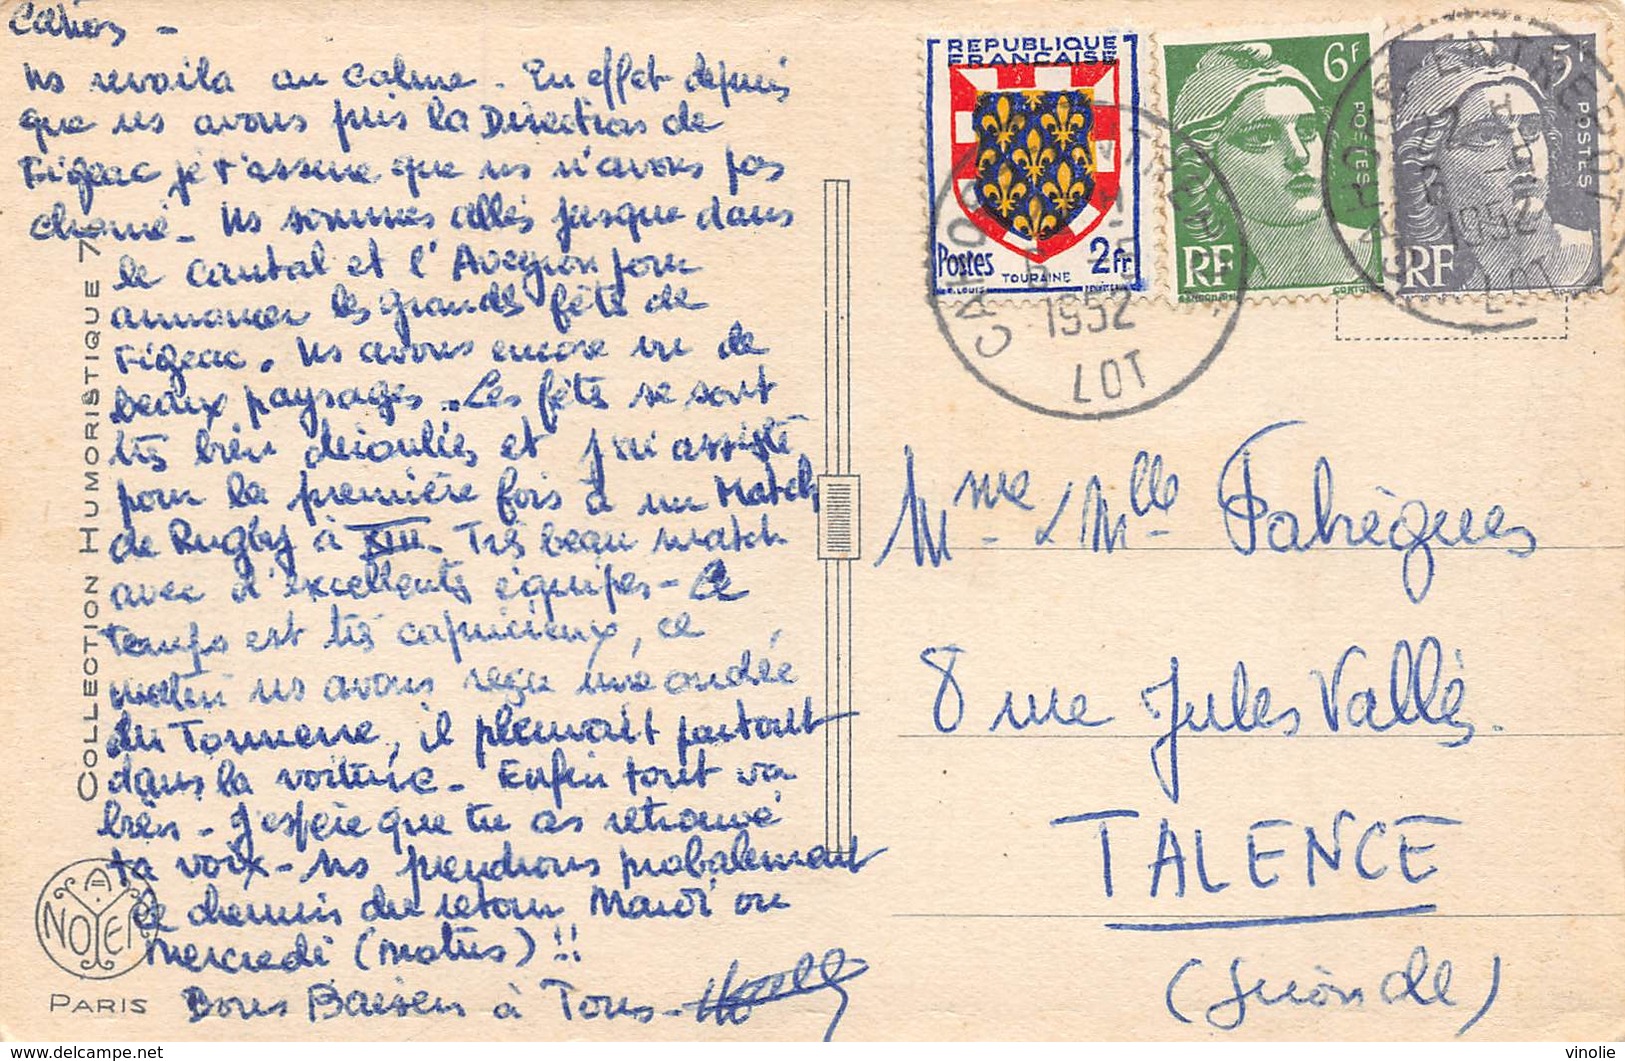 Cahors -
Ns revoila au calme. En effet depuis
que ns avons pris la Direction de
Figeac je t'assure que ns n'avons pas
chomé. Ns sommes allés jusque dans
le Cantal et l'Aveyron pour
annoncer les grandes fête de
Figeac. Ns avons encore vu de
beaux paysages. Les fêtes se sont
très bien déroulées et j'ai assisté
pour la première fois à un Match
de Rugby à XIII. Très beau match
avec d'excellents équipes - Le
temps est très capricieux, ce
matin ns avons reçu une ondée
du Tonnerre, il pleuvait partout
dans la voiture - Enfin tout va
bien - J'espère que tu as retrouvé
ta voix - Ns prendrons probablement
le chemin du retour Mardi ou
Mercredi (matin) !!
Bons Baisers à Tous -
COLLECTION HUMORISTIQUE 7
A
NOYER
PARIS
REPUBLIQUE
FRANCAISE
Postes
TOURAINE
2fr
6F
POSTES
RF
5F
POSTES
RF
CAHORS
1952
LOT
CAHORS ENTREPOT
1952
LOT
Mme & Mlle Fabrègues
8 rue Jules Vallès.
TALENCE
(Gironde)
vinolie